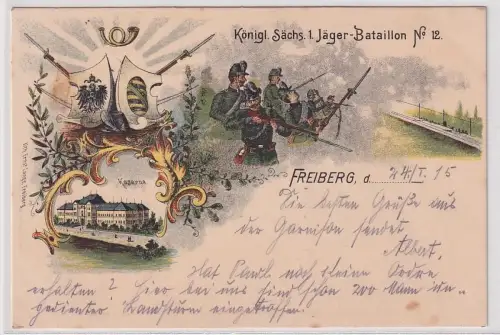 Königl. Sächs. 1. Jäger-Bataillon No 12.
Kaserne
FREIBERG, d. 24/I. 15
Die besten Grüße aus
der Garnison sendet
Albert,
Hat Paul noch keine
erhalten? Hier bei uns sind schon 200 Mann un-
gedienter Landsturm eingetroffen.